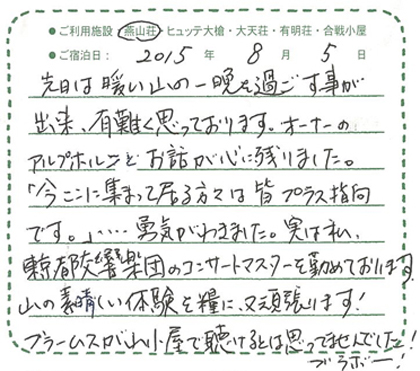 ●ご利用施設 燕山荘・ヒュッテ大槍・大天荘・有明荘・合戦小屋
●ご宿泊日: 2015年 8月 5日
先日は暖い山の一晩を過ごす事が
出来、有難く思っております。オーナーの
アルプホルンとお話が心に残りました。
「今ここに集まって居る方々は皆プラス指向
です。」‥‥勇気がわきました。実は私、
東京都交響楽団のコンサートマスターを勤めております。
山の素晴しい体験を糧に、又頑張ります!
ブラームスが山小屋で聴けるとは思ってませんでした!
ブラボー!